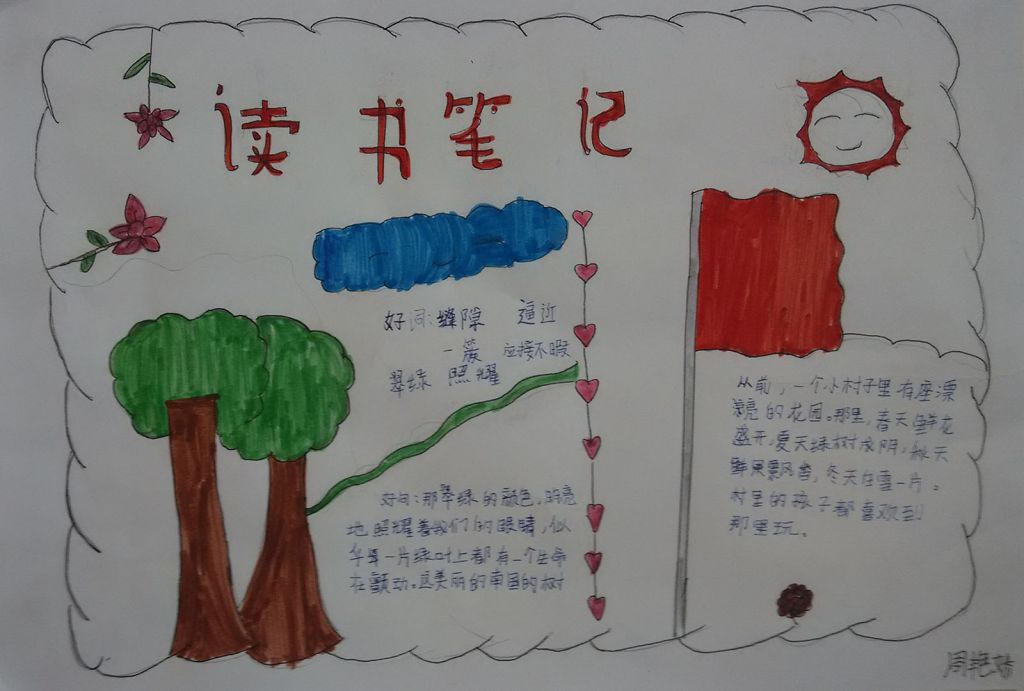 读书笔记
好词:缝隙 逼近
一簇 应接不暇
翠绿 照耀
好句:那翠绿的颜色,明亮
地照耀着我们的眼睛,似
乎每一片绿叶上都有一个生命
在颤动。这美丽的南国的树
从前,一个小村子里有座漂
漂亮的花园。那里,春天鲜花
盛开,夏天绿树成阴,秋天
鲜果飘香,冬天白雪一片。
村里的孩子都喜欢到
那里玩。